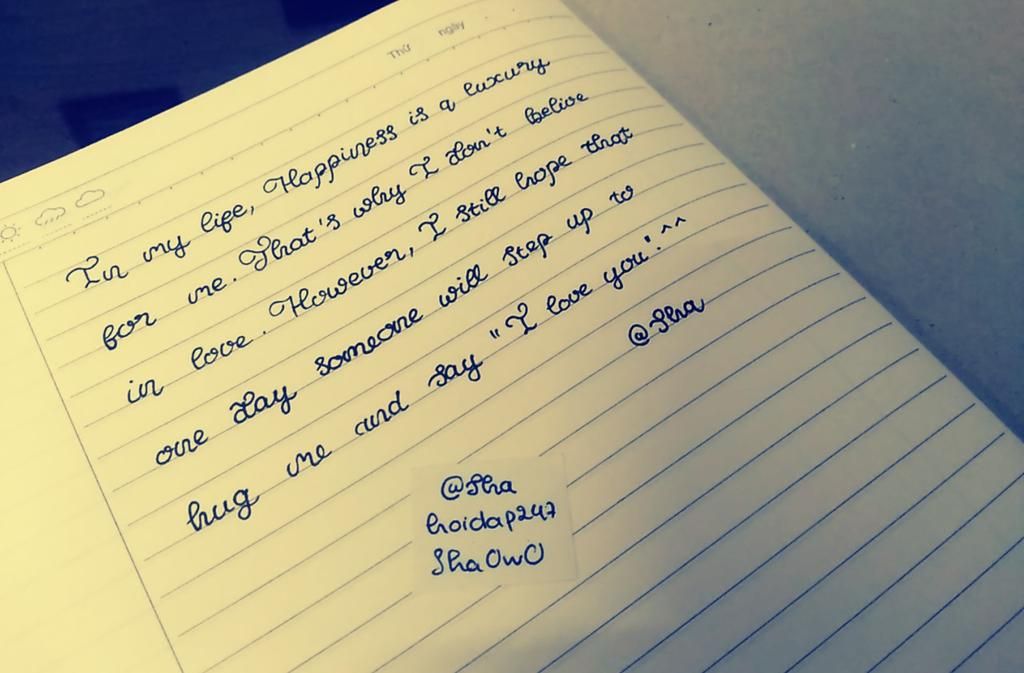 Thứ ngày
In my life, Happiness is a luxury
for me. That's why I don't belive
in love. However, I still hope that
one day someone will step up to
hug me and say "I love you".^^
@Sha
@Sha
hoidap247
ShaOwO